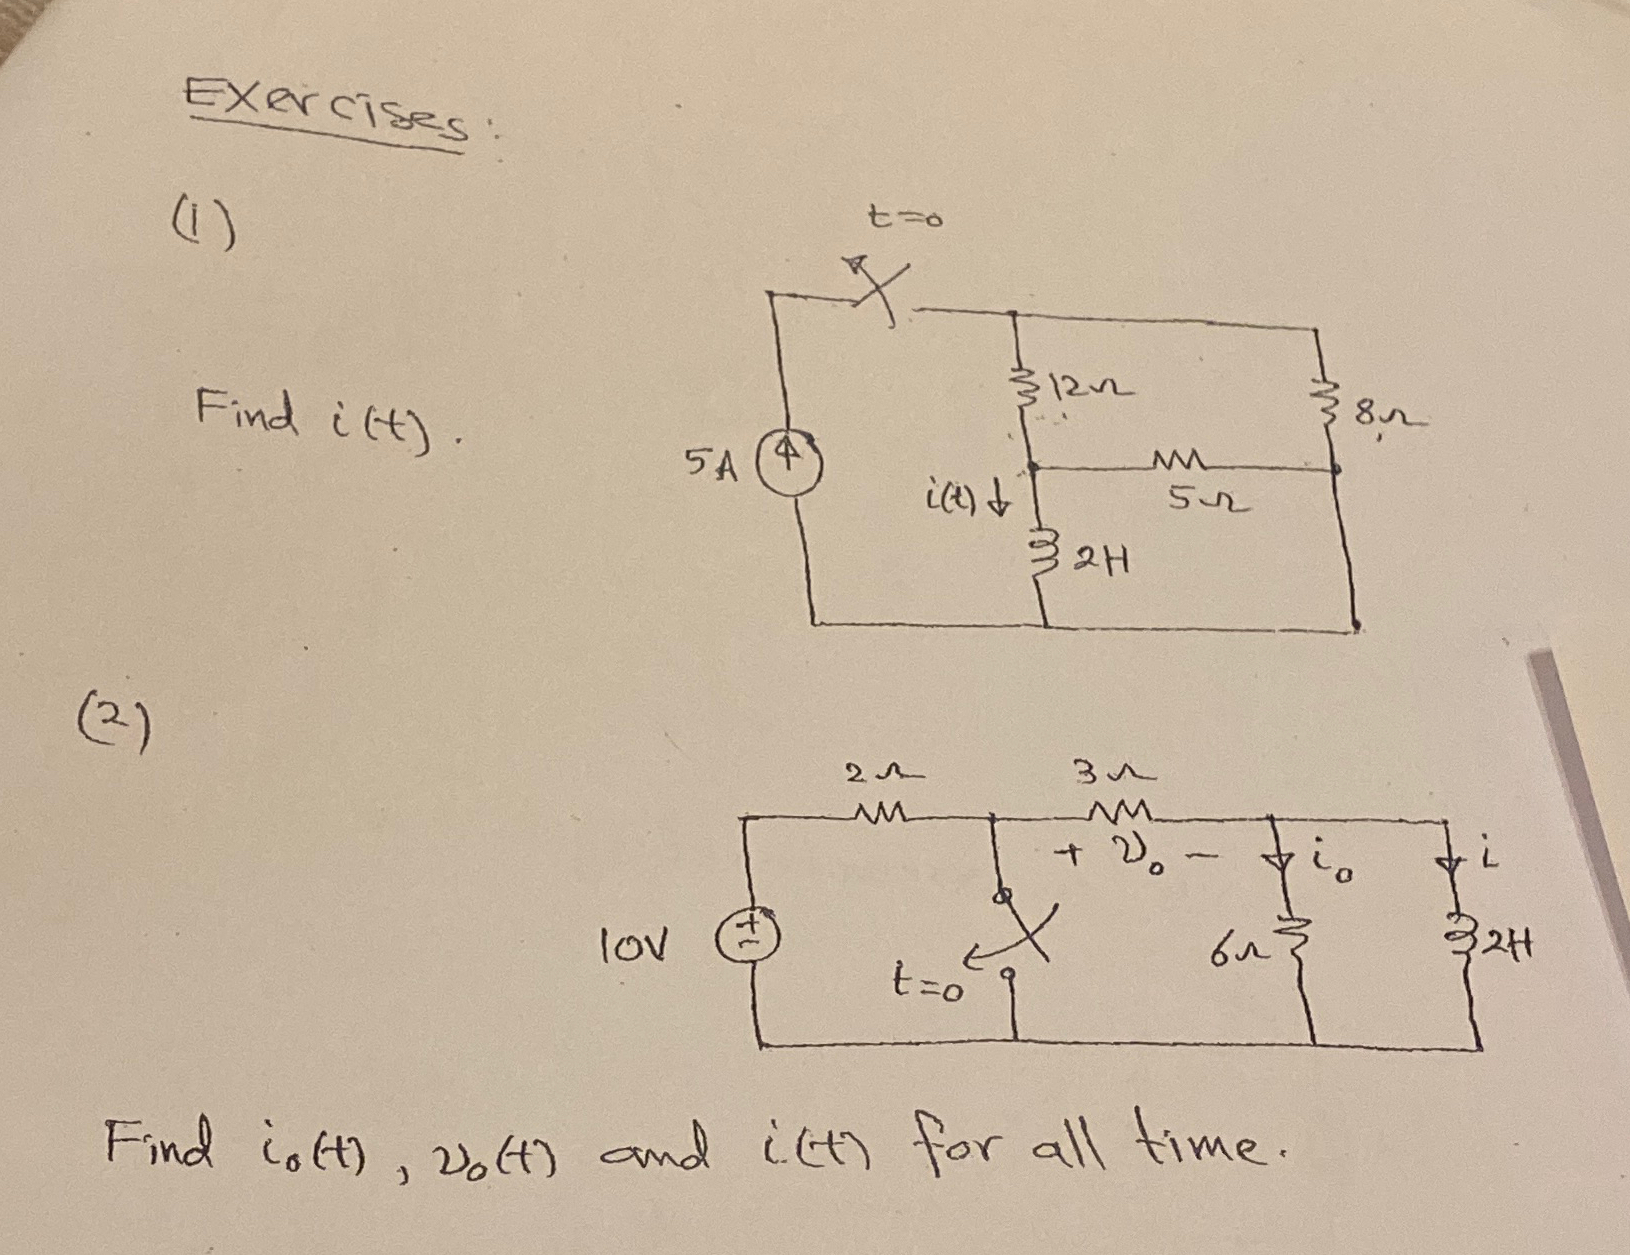 Exercises:
(1)
t=0
Find i(t).
12Ω
8Ω
5A
i(t)
5Ω
2H
(2)
2Ω
3Ω
+ v₀ -
i₀
i
10V
+
-
6Ω
2H
t=0
Find i₀(t), v₀(t) and i(t) for all time.